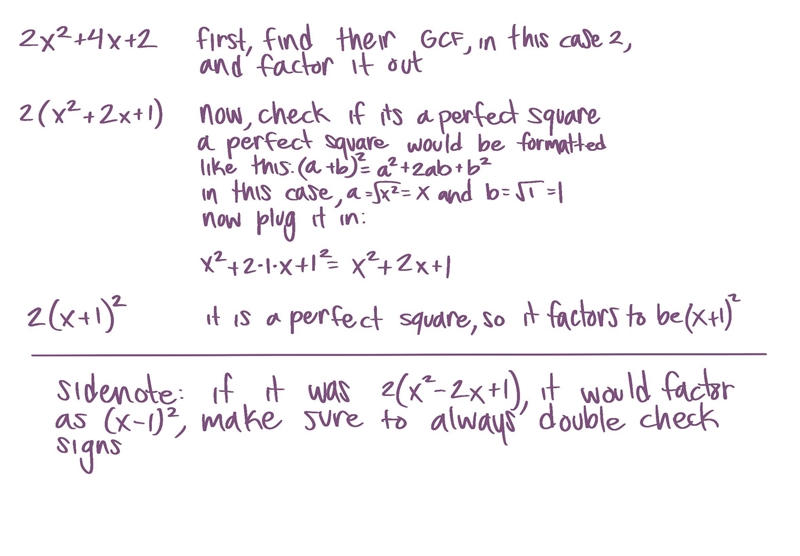 2x²+4x+2 first, find their GCF, in this case 2,
and factor it out
2(x²+2x+1) now, check if its a perfect square
a perfect square would be formatted
like this: (a+b)²= a²+2ab+b²
in this case, a=√x²=x and b=√1=1
now plug it in:
x²+2·1·x+1²= x²+2x+1
2(x+1)² it is a perfect square, so it factors to be (x+1)²
sidenote: if it was 2(x²-2x+1), it would factor
as (x-1)², make sure to always double check
signs